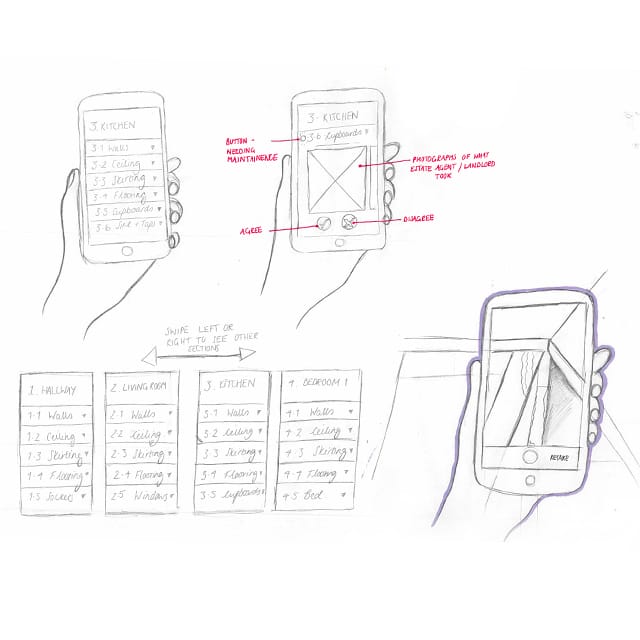 3. KITCHEN
3.1 Walls
3.2 Ceiling
3.3 Skirting
3.4 Flooring
3.5 Cupboards
3.6 Sink + Taps
3. KITCHEN
3.6 Cupboards
BUTTON -
NEEDING
MAINTAINENCE
PHOTOGRAPHS OF WHAT
ESTATE AGENT / LANDLORD
TOOK
AGREE
DISAGREE
SWIPE LEFT OR
RIGHT TO SEE OTHER
SECTIONS
1. HALLWAY
1.1 Walls
1.2 Ceiling
1.3 Skirting
1.4 Flooring
1.5 Sockets
2. LIVING ROOM
2.1 Walls
2.2 Ceiling
2.3 Skirting
2.4 Flooring
2.5 Windows
3. KITCHEN
3.1 Walls
3.2 Ceiling
3.3 Skirting
3.4 Flooring
3.5 Cupboards
4. BEDROOM 1
4.1 Walls
4.2 Ceiling
4.3 Skirting
4.4 Flooring
4.5 Bed
RETAKE